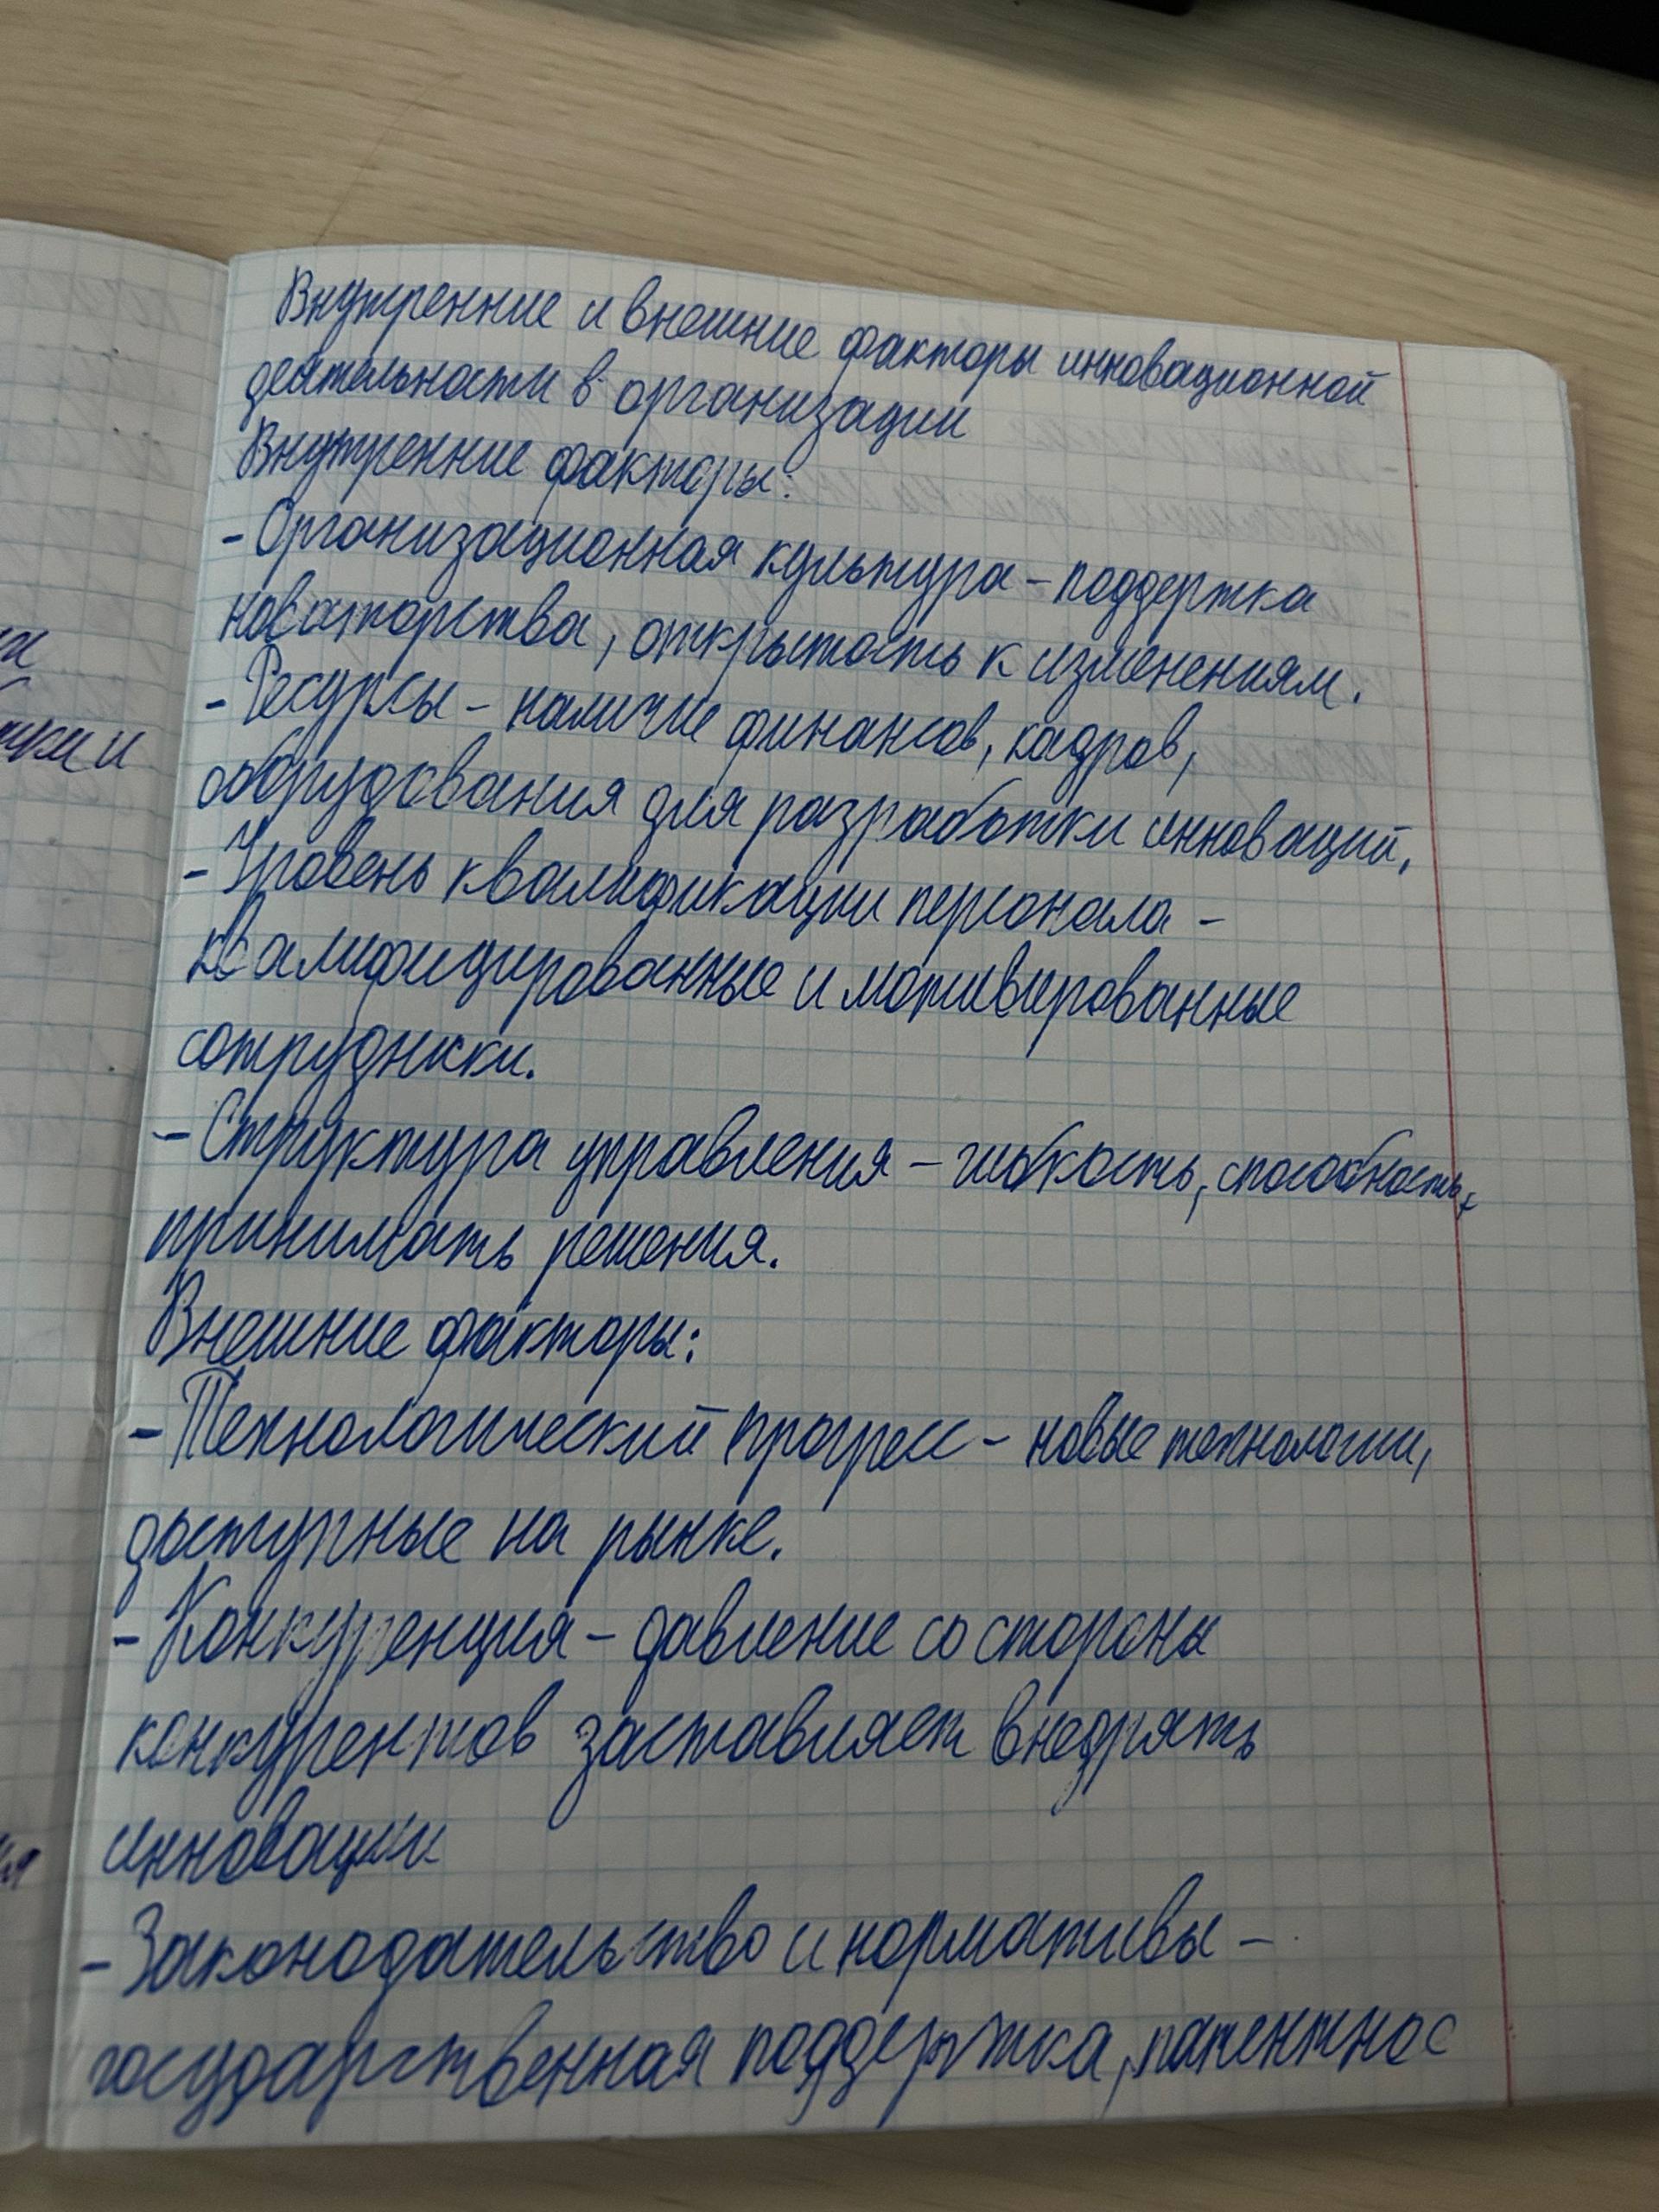 Внутренние и внешние факторы инновационной
деятельности в организации
Внутренние факторы:
- Организационная культура - поддержка
новаторства, открытость к изменениям.
- Ресурсы - наличие финансов, кадров,
оборудования для разработки инноваций.
- Уровень квалификации персонала -
квалифицированные и мотивированные
сотрудники.
- Структура управления - гибкость, способность
принимать решения.
Внешние факторы:
- Технологический прогресс - новые технологии,
доступные на рынке.
- Конкуренция - давление со стороны
конкурентов заставляет внедрять
инновации
- Законодательство и нормативы -
государственная поддержка, патентное